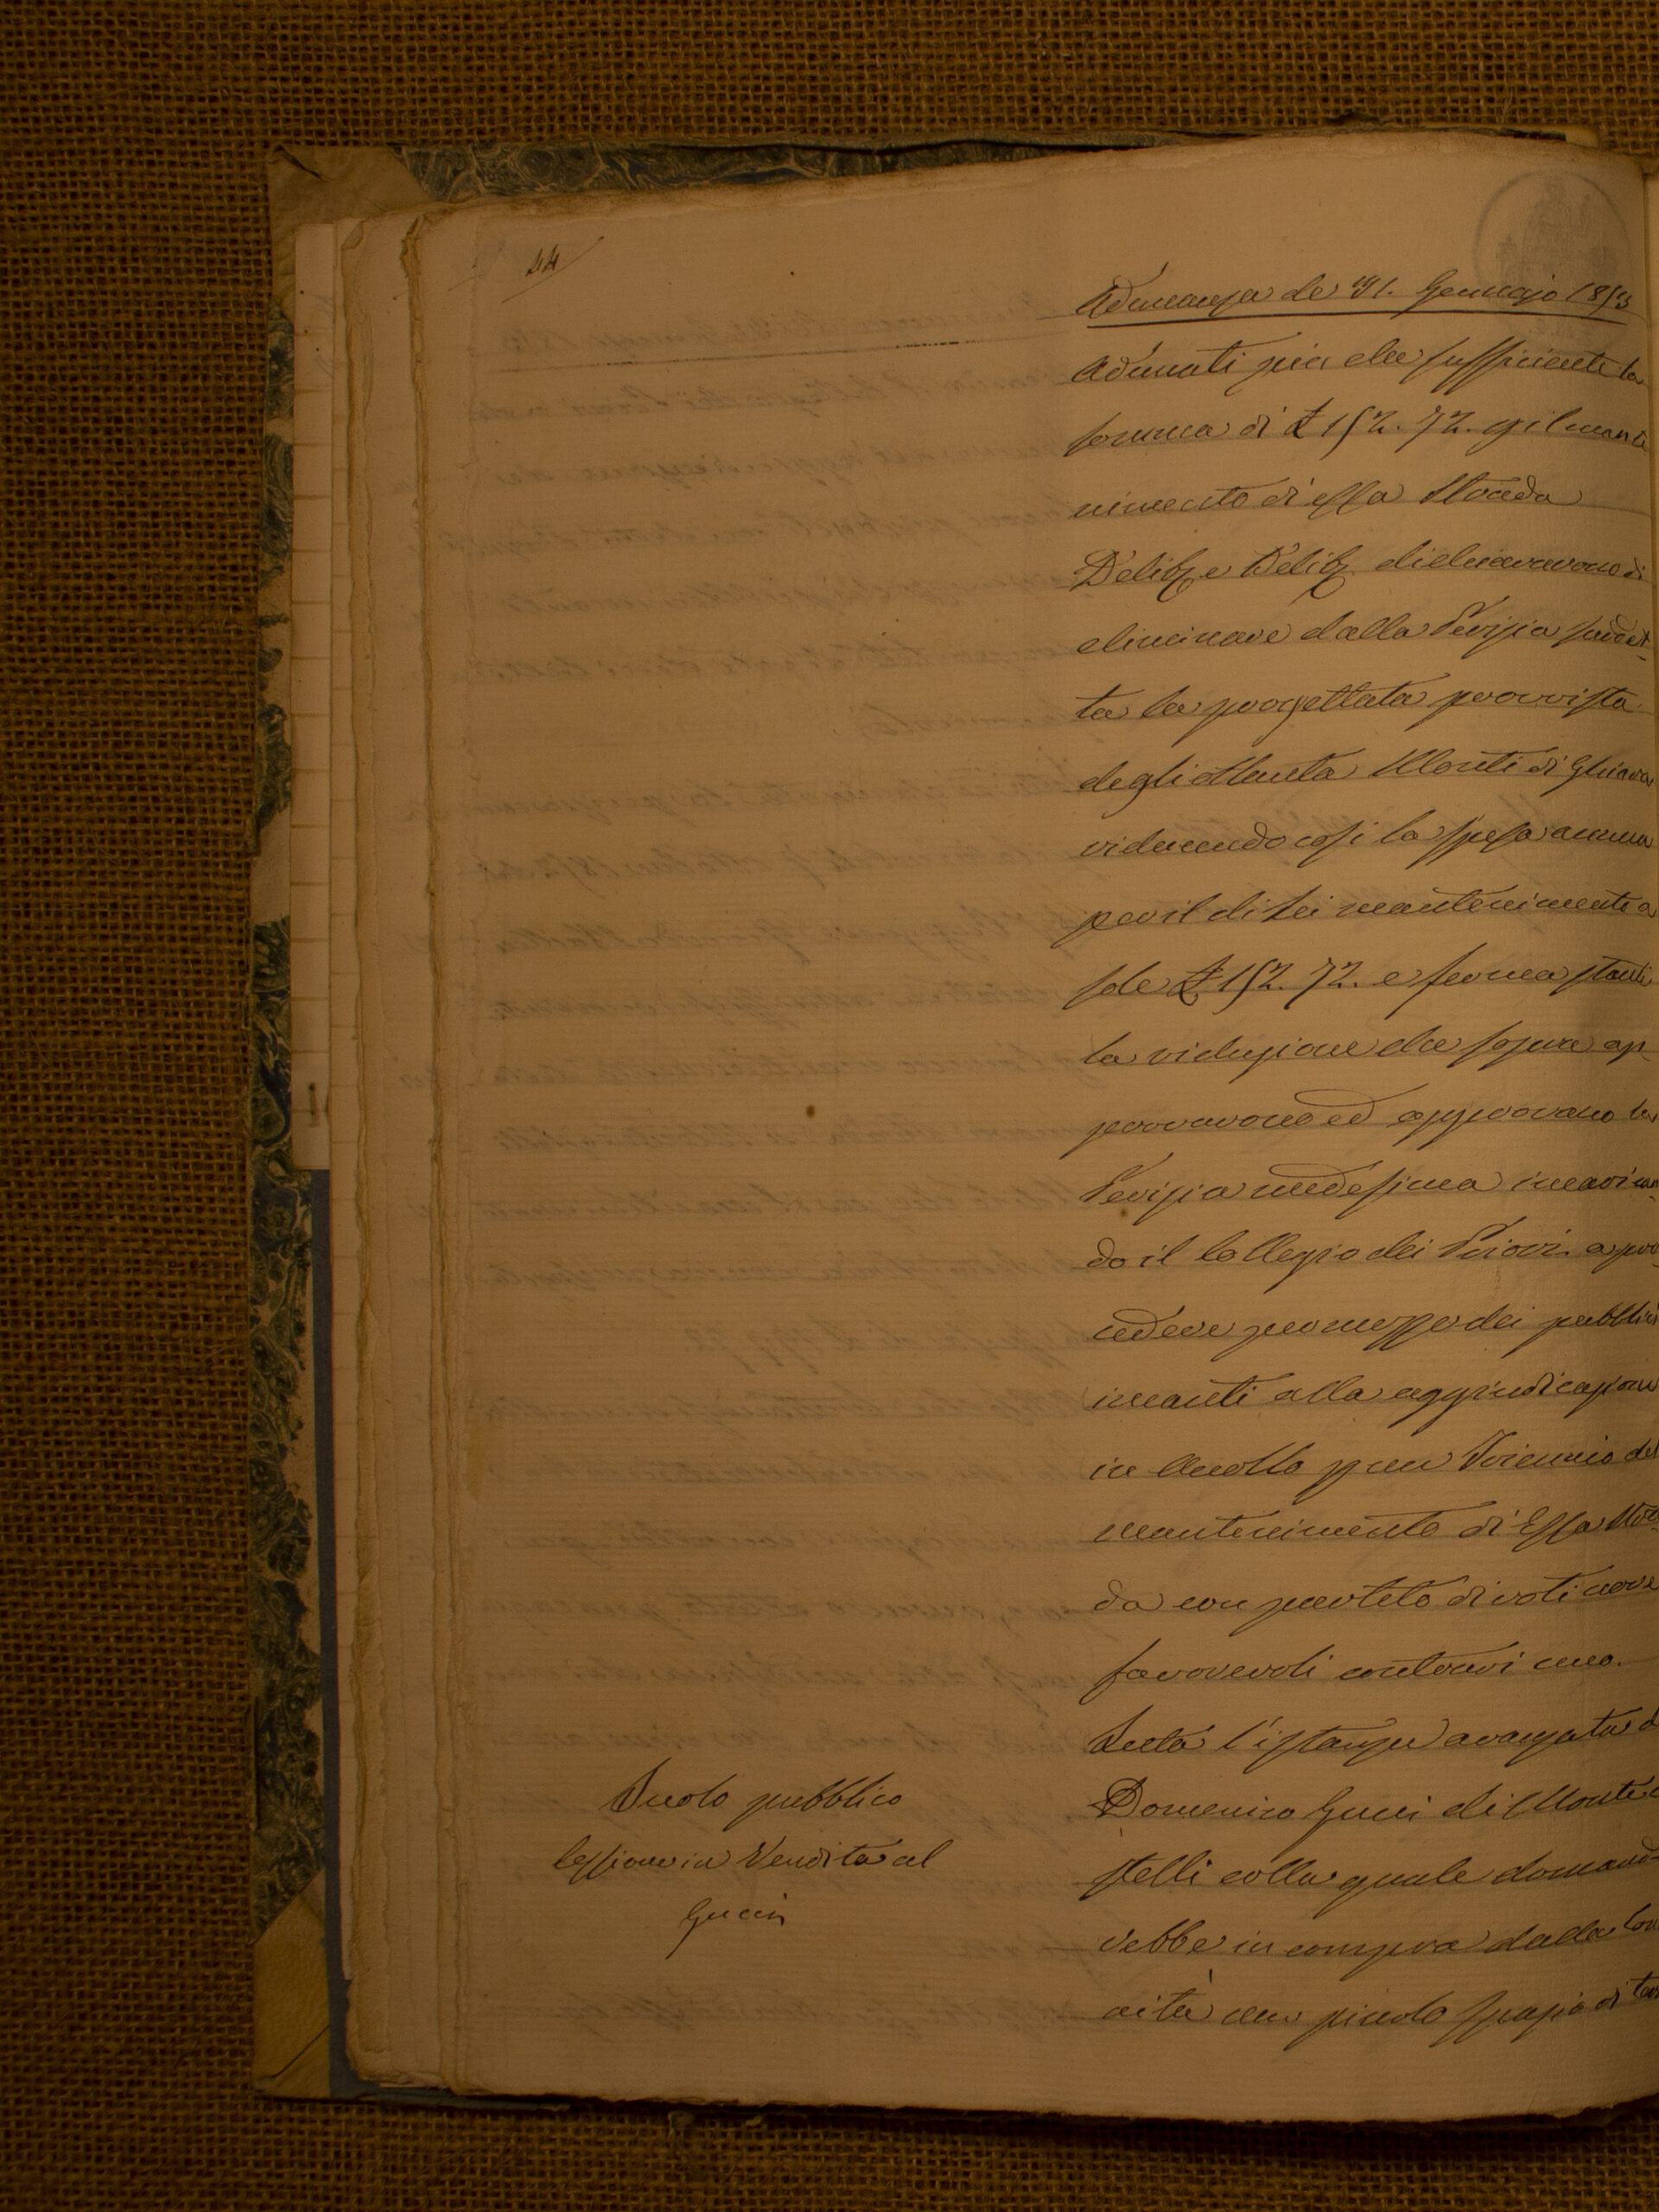 44
Adunanza de 31. Gennajo 1853
Adunati più che sufficiente la
somma di £ 152. 72. p il mante
nimento di essa Strada
Delib. e Delib. dichiararono di
eliminare dalla Perizia sudet-
ta la progettata provvista
degli ottanta Monti di Ghiara
riducendo così la spesa annua
per il di Lei mantenimento a
sole £ 152. 72. e ferma stante
la riduzione che sopra ap
provarono ed approvano la
Perizia medesima incarican-
do il Collegio dei Priori a pro
cedere per mezzo dei pubblici
incanti alla aggiudicazione
in Accollo p un Triennio del
mantenimento di Essa Stra-
da con partito di voti nove
favorevoli contrari uno.
Letta l'istanza avanzata d
Domenico Gucci di Monte
stelli colla quale domand-
rebbe in compra dalla Com
nità un piccolo spazio di ter
Suolo pubblico
Cessione in Vendita al
Gucci